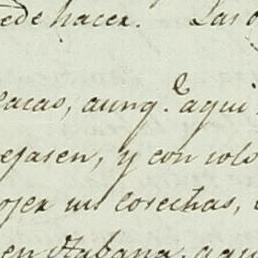 ede hacer. Las
acas, aunq.e aqui
ejasen, y con solo
ojer sus cosechas,
en Habana, aqui